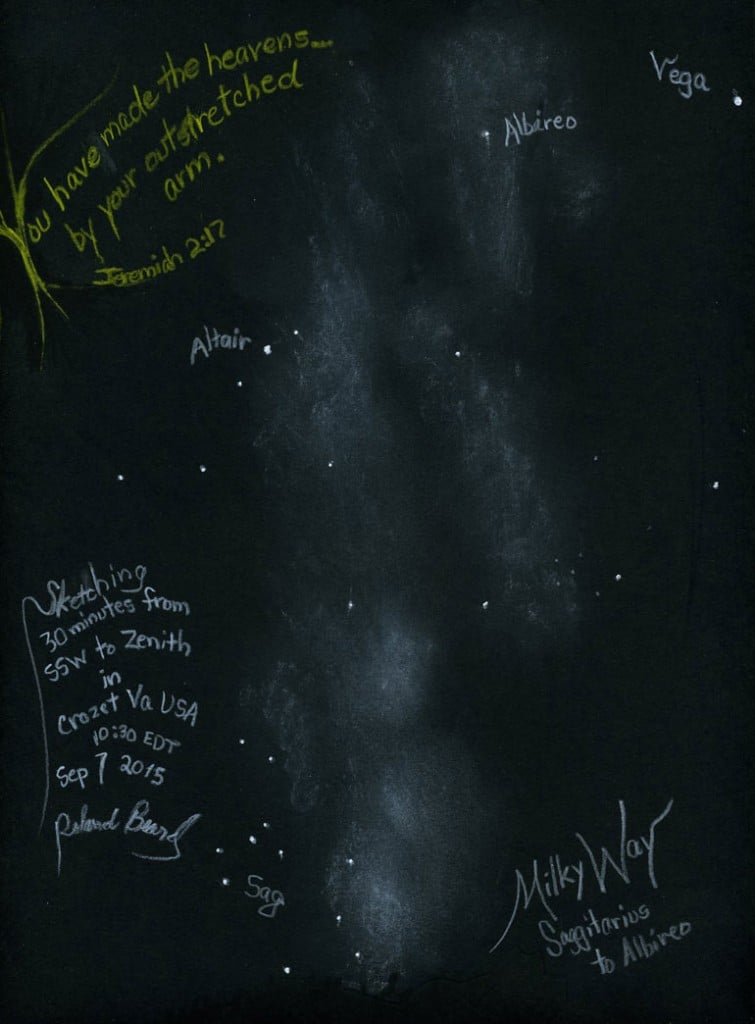 You have made the heavens...
by your outstretched
arm.
Jeremiah 2:17
Vega
Albireo
Altair
Sketching
30 minutes from
SSW to Zenith
in
Crozet Va USA
10:30 EDT
Sep 7 2015
Sag
Milky Way
Saggitarius
to Albireo